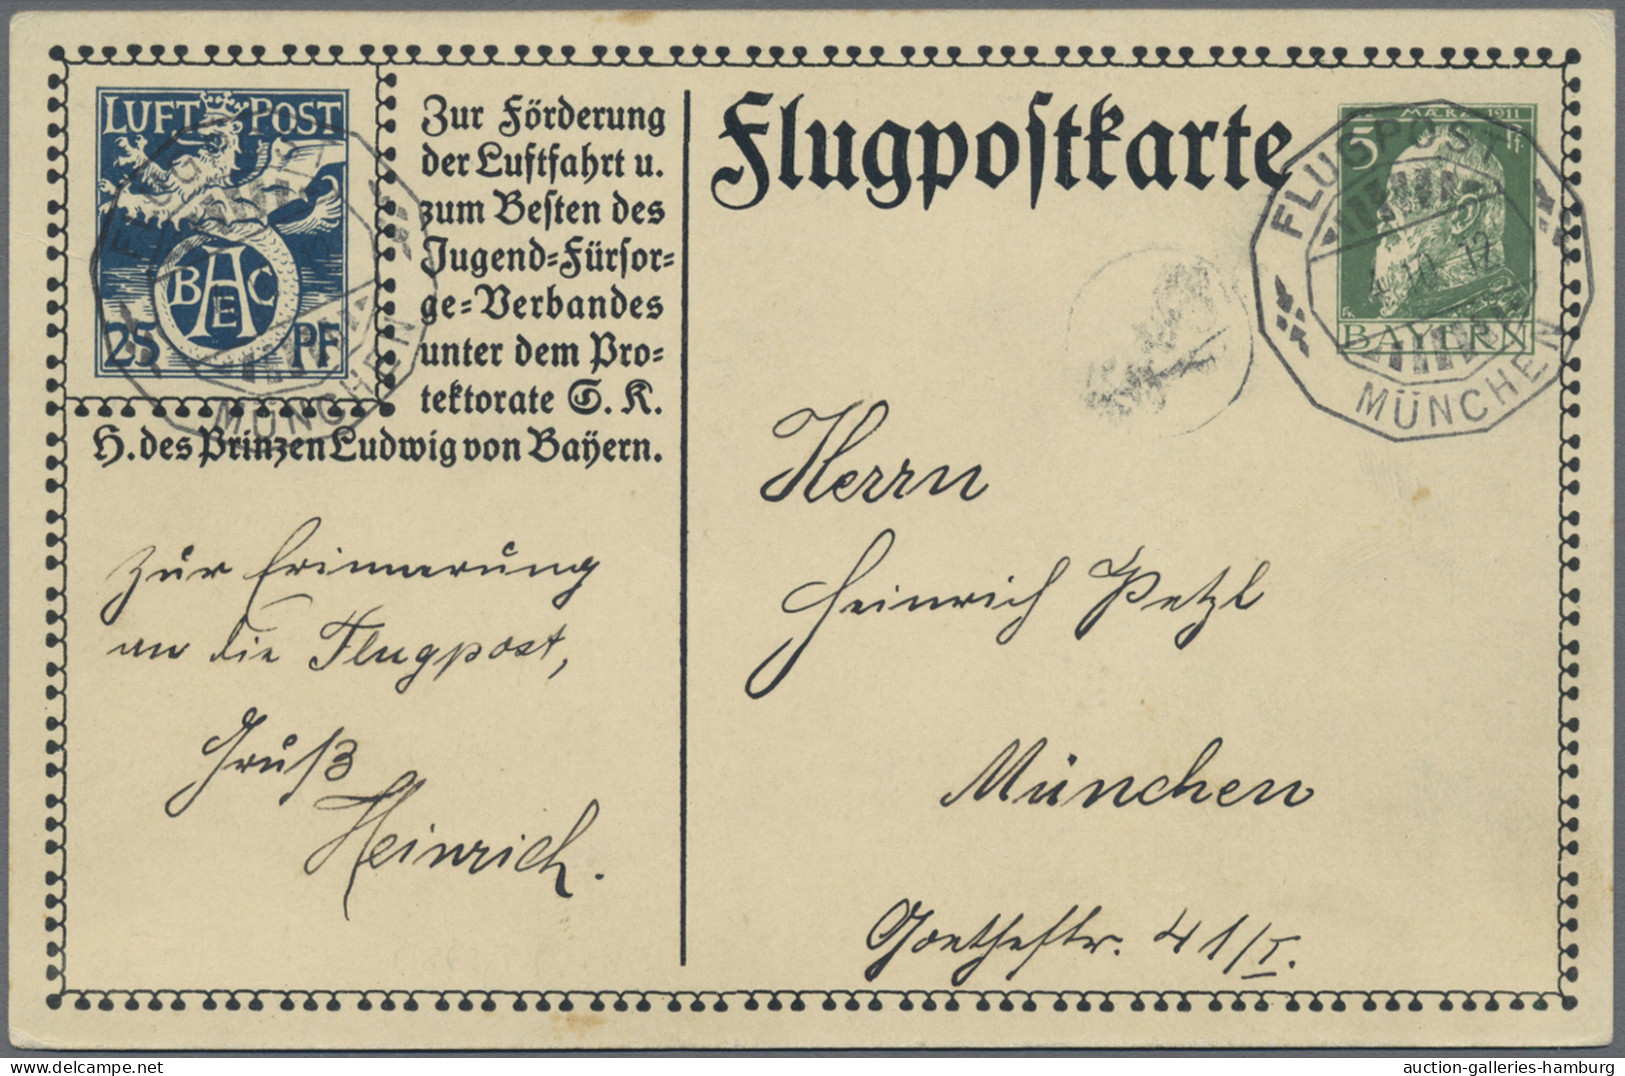 LUFT POST
BAEC
25 PF
Zur Förderung
der Luftfahrt u.
zum Besten des
Jugend=Fürsor=
ge=Verbandes
unter dem Pro=
tektorate S. K.
H. des Prinzen Ludwig von Bayern.
FLUGPOST
MÜNCHEN
Flugpostkarte
MÄRZ 1911
5 Pf.
BAYERN
FLUGPOST
10 12
MÜNCHEN
Zur Erinnerung
an die Flugpost,
Gruß
Heinrich.
Herrn
Heinrich Petzl
München
Goethestr. 41/I.
auction-galleries-hamburg